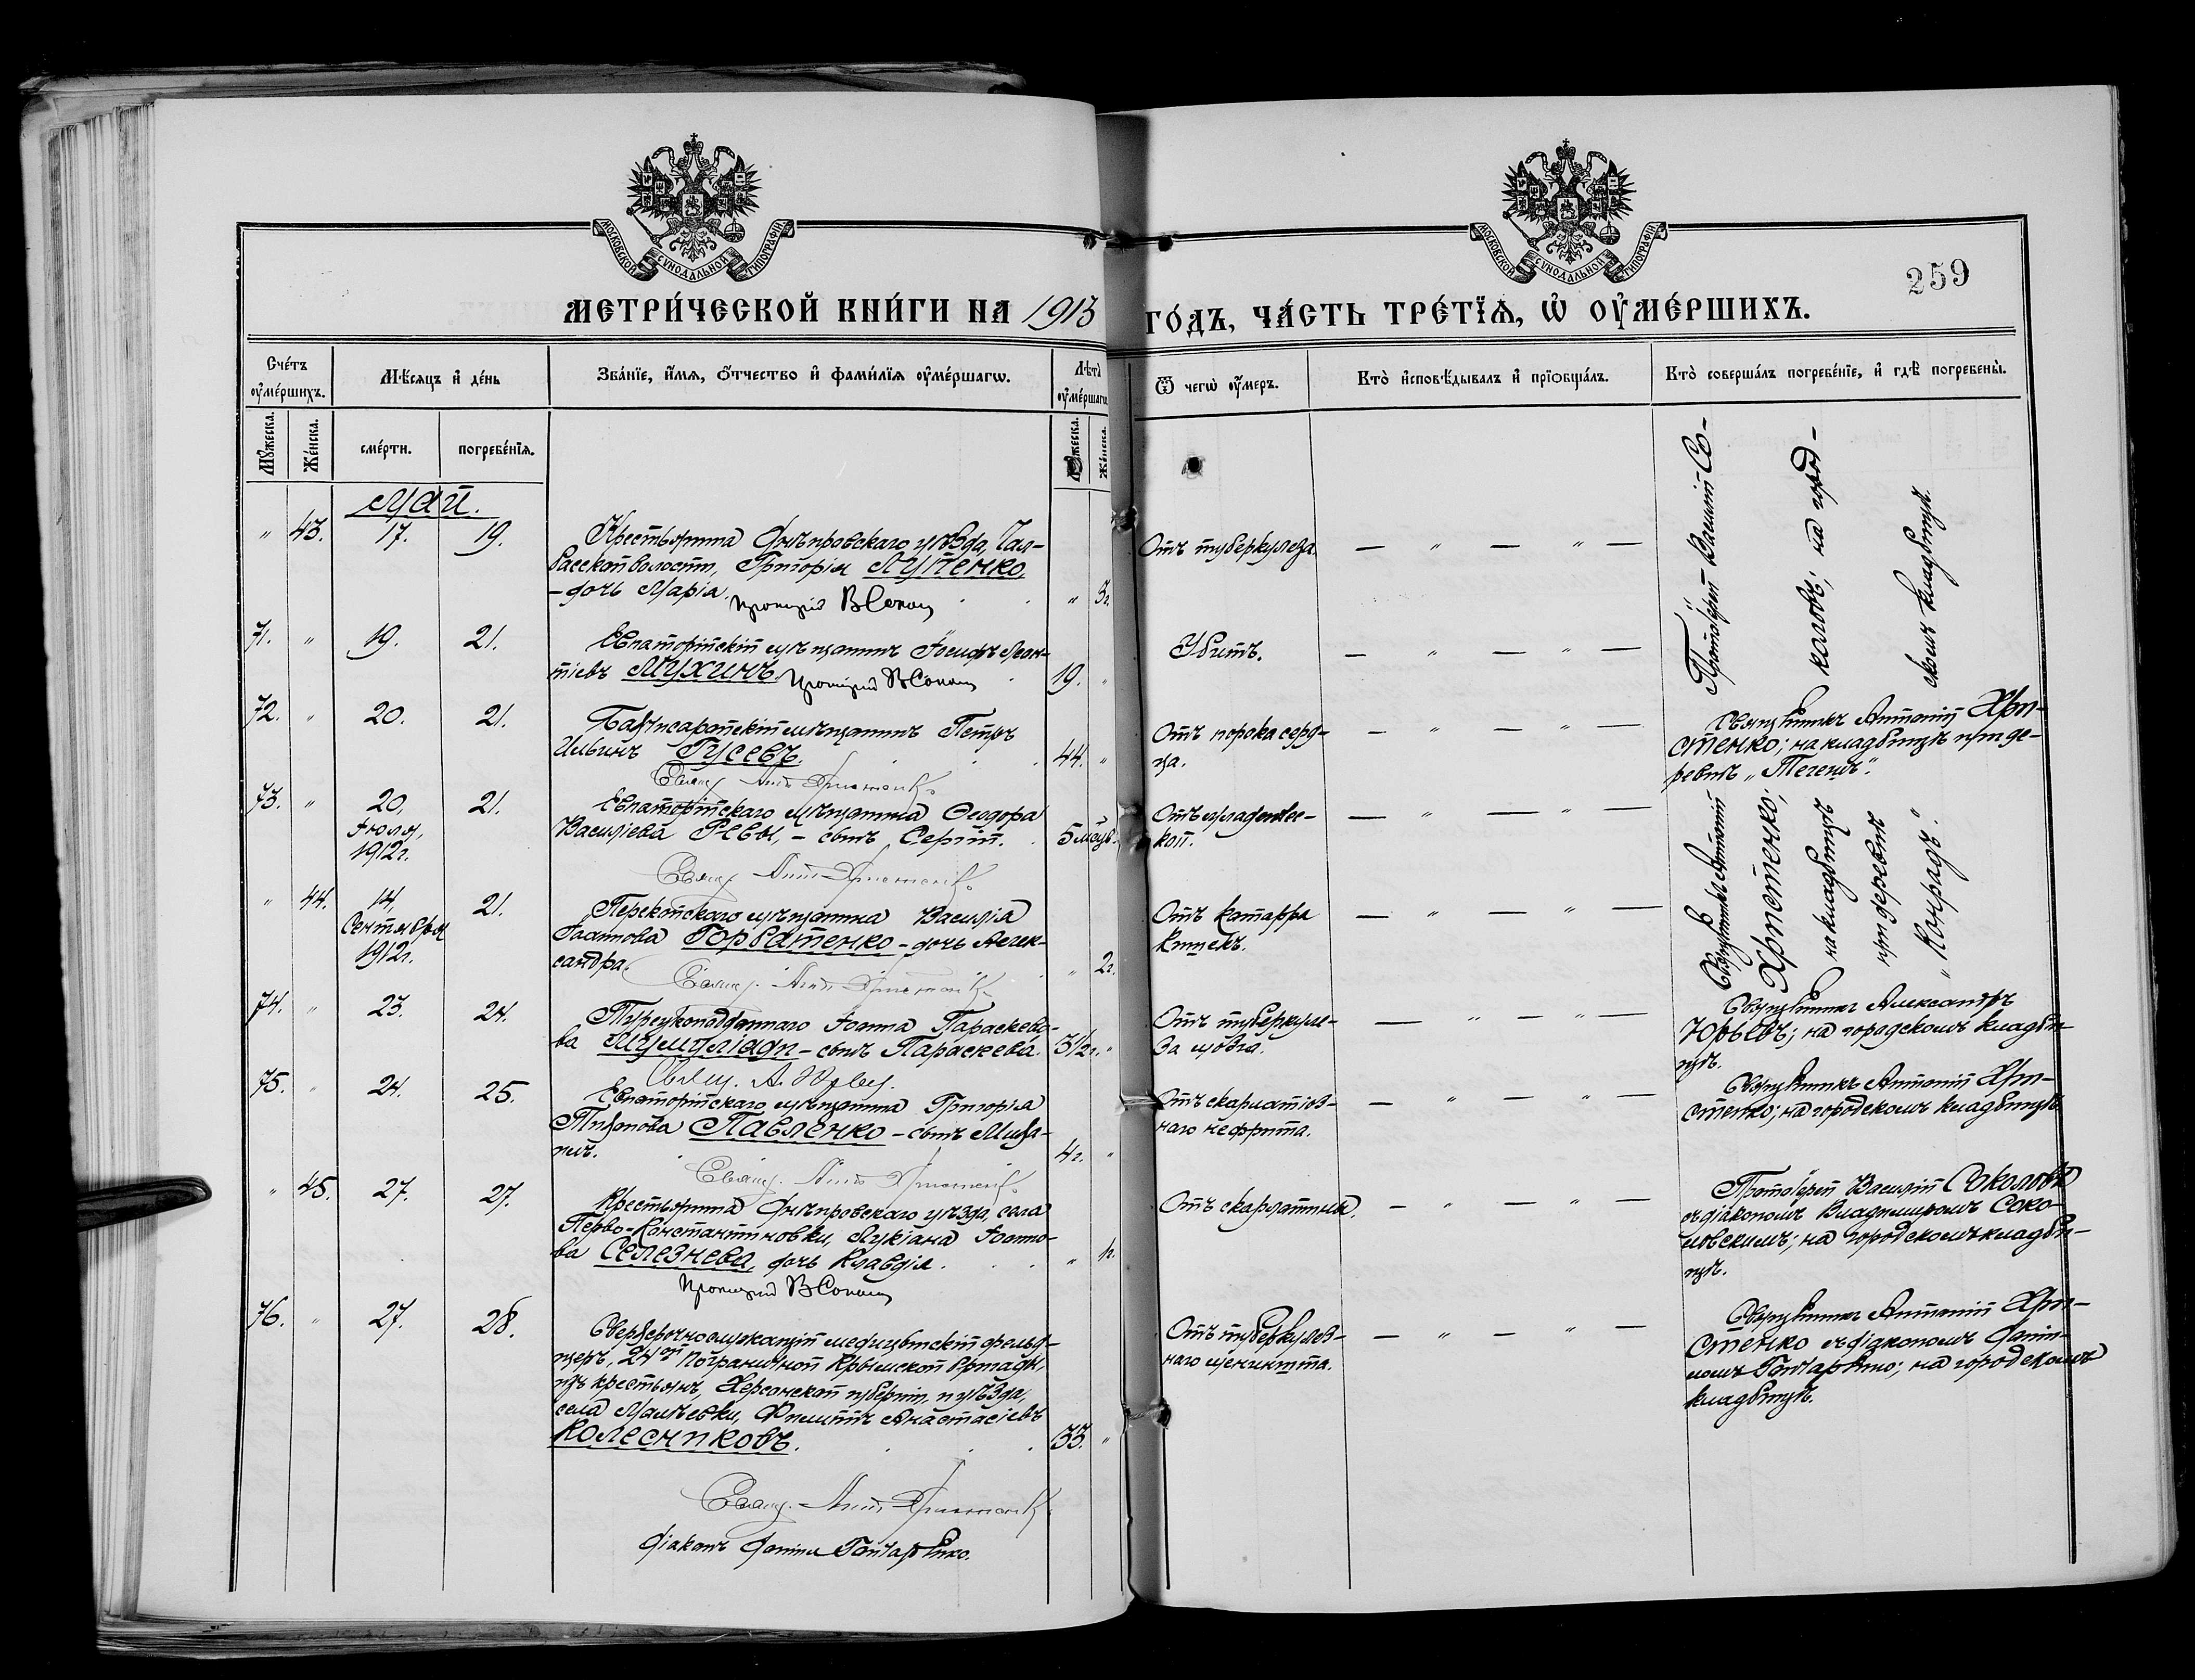 МОСКОВСКОЙ СѴНОДАЛЬНОЙ ТИПОГРАФІИ
МОСКОВСКОЙ СѴНОДАЛЬНОЙ ТИПОГРАФІИ
259
МЕТРИ́ЧЕСКОЙ КНИ́ГИ НА 1913 ГО́ДЪ, ЧА́СТЬ ТРЕ́ТЇѦ, Ѡ҆ ОУ҆МЕ́РШИХЪ.
Сче́тъ оу҆ме́ршихъ.
Мѣ́сяцъ и҆ де́нь
Зва́нїе, и҆́мѧ, ѻ҆́тчество и҆ фами́лїѧ оу҆ме́ршагѡ.
Лѣ́та̀ оу҆ме́ршагѡ
Ѿ чегѡ̀ оу҆́меръ.
Кто̀ и҆сповѣ́дывалъ и҆ прїѻбща́лъ.
Кто̀ соверша́лъ погребе́нїе, и҆ гдѣ̀ погребены̀.
Мꙋ́жеска.
Же́нска.
сме́рти.
погребе́нїѧ.
Мꙋ́жеска.
Же́нска.
Май.
" 43. 17. 19.
Крестьянина Днѣпровскаго уѣзда, Чал-
басской волости, Григорія Лупенко
- дочь Марія. " 3г.
Протоіерей В Сокол
Отъ туберкулеза. — " — " —
Протоіерей Василій Со-
коловъ; на город-
скомъ кладбищѣ.
71. " 19. 21.
Евпаторійскій мѣщанинъ Іосифъ Леон-
тіевъ Мухинъ. 19. "
Протоіерей В Сокол
Убитъ. — " — " —
72. " 20. 21.
Бахчисарайскій мѣщанинъ Петръ
Ильинъ Гусевъ. 44. "
Свящ. Ант. Христенко
Отъ порока серд-
ца. — " — " —
Священникъ Антоній Хри-
стенко; на кладбищѣ при де-
ревнѣ „Тегешъ".
73. " 20, Іюля, 1912г. 21.
Евпаторійскаго мѣщанина Ѳеодора
Василіева Ревы, - сынъ Сергій. 5 мѣсяц.
Свящ. Ант. Христенко
Отъ младенчес-
кой. — " — " —
Священникъ Антоній
Христенко;
на кладбищѣ
при деревнѣ
„Конрадъ".
" 44. 14, Сентября 1912г. 21.
Перекопскаго мѣщанина Василія
Горбатенко - дочь Алек-
сандра. " 2г.
Свящ. Ант. Христенко
Отъ катарра
кишекъ. — " — " —
74. " 23. 24.
Турецкоподданнаго Іоанна Параскево-
ва Мумуліади - сынъ Параскева. 3½г. "
Свящ. А. Юрьев
Отъ туберкуле-
за мозга. — " — " —
Священникъ Александръ
Юрьевъ; на городскомъ кладби-
щѣ.
75. " 24. 25.
Евпаторійскаго мѣщанина Григорія
Тихонова Павленко - сынъ Миха-
илъ. 4г. "
Свящ. Ант. Христенко
Отъ скарлатиз-
наго нефрита. — " — " —
Священникъ Антоній Хри-
стенко; на городскомъ кладбищѣ.
" 45. 27. 27.
Крестьянина Днѣпровскаго уѣзда, села
Перво-Константиновки, Лукіана Іоанно-
ва Селезнева, дочь Клавдія. "
Протоіерей В Сокол
Отъ скарлатины. — " — " —
Протоіерей Василій Соколовъ
съ діакономъ Владиміромъ Соко-
ловскимъ; на городскомъ кладби-
щѣ.
76. " 27. 28.
Сверхсрочнослужащій медицинскій фельд-
шеръ, 24ой Пограничной Крымской бригады,
изъ крестьянъ, Херсонской губерніи, и уѣзда,
села Малѣевки, Филиппъ Анастасіевъ
Колесниковъ. 33. "
Свящ. Ант. Христенко
Діаконъ Даніилъ Гончаренко.
Отъ туберкулез-
наго менингита. — " — " —
Священникъ Антоній Хри-
стенко съ діакономъ Даніи-
ломъ Гончаренко; на городскомъ
кладбищѣ.